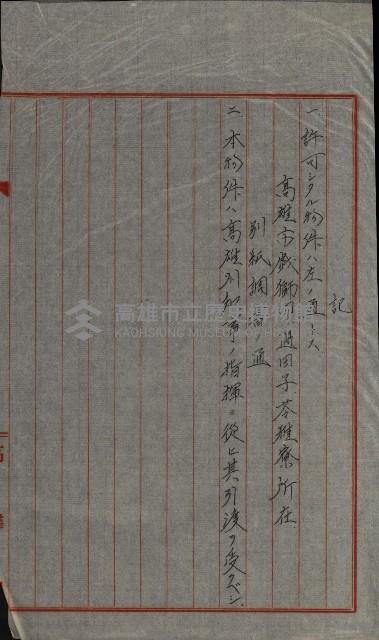 記
一 許可シタル物件ハ左ノ通トス
高雄市戲獅甲、過田子、苓雅寮所在
別紙調書ノ通
二 本物件ハ高雄州知事ノ指揮ニ從ヒ其引渡ヲ受クベシ
高雄市立歷史博物館
KAOHSIUNG MUSEUM
高雄